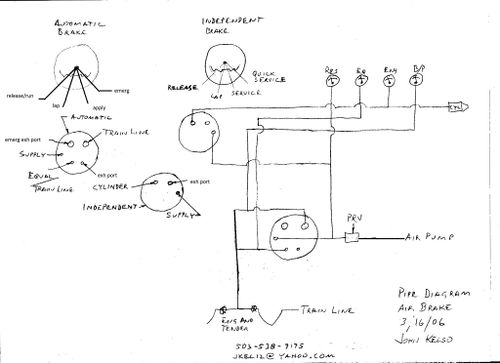 AUTOMATIC
BRAKE
INDEPENDENT
BRAKE
release/run
lap
apply
emerg
RELEASE
LAP
SERVICE
QUICK
SERVICE
RES
EQ
ENG
B/P
CYL
AUTOMATIC
emerg exh port
TRAIN LINE
SUPPLY
EQUAL
TRAIN LINE
exh port
CYLINDER
exh port
INDEPENDENT
SUPPLY
PRV
AIR PUMP
ENG AND
TENDER
TRAIN LINE
PIPE DIAGRAM
AIR BRAKE
3/16/06
JOHN KELSO
503-538-7175
JKBL12@YAHOO.COM